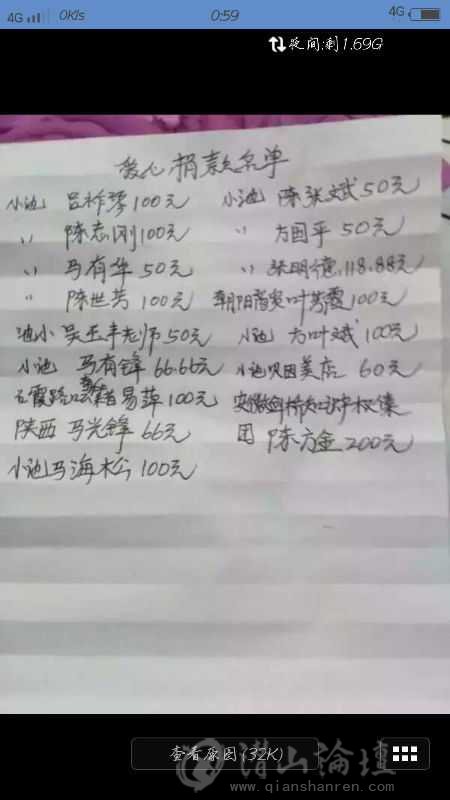 4G 0K/s 0:59 4G
夜间:剩1.69G
爱心捐款名单
小池 吕柞琴100元 小池 陈张斌50元
〃 陈志刚100元 〃 方国平 50元
〃 马有华 50元 〃 张明德118.88元
〃 陈世芳 100元 朝阳 叶芳霞100元
池小 吴玉丰老师50元 小池 方叶斌100元
小池 马有锋 66.66元 小池 美店 60元
石霞路 易萍100元 安徽 知识产权集
陕西 马光锋 66元 团 陈方金200元
小池马海松 100元
查看原图(32K)
潜山论坛
www.qianshanren.com